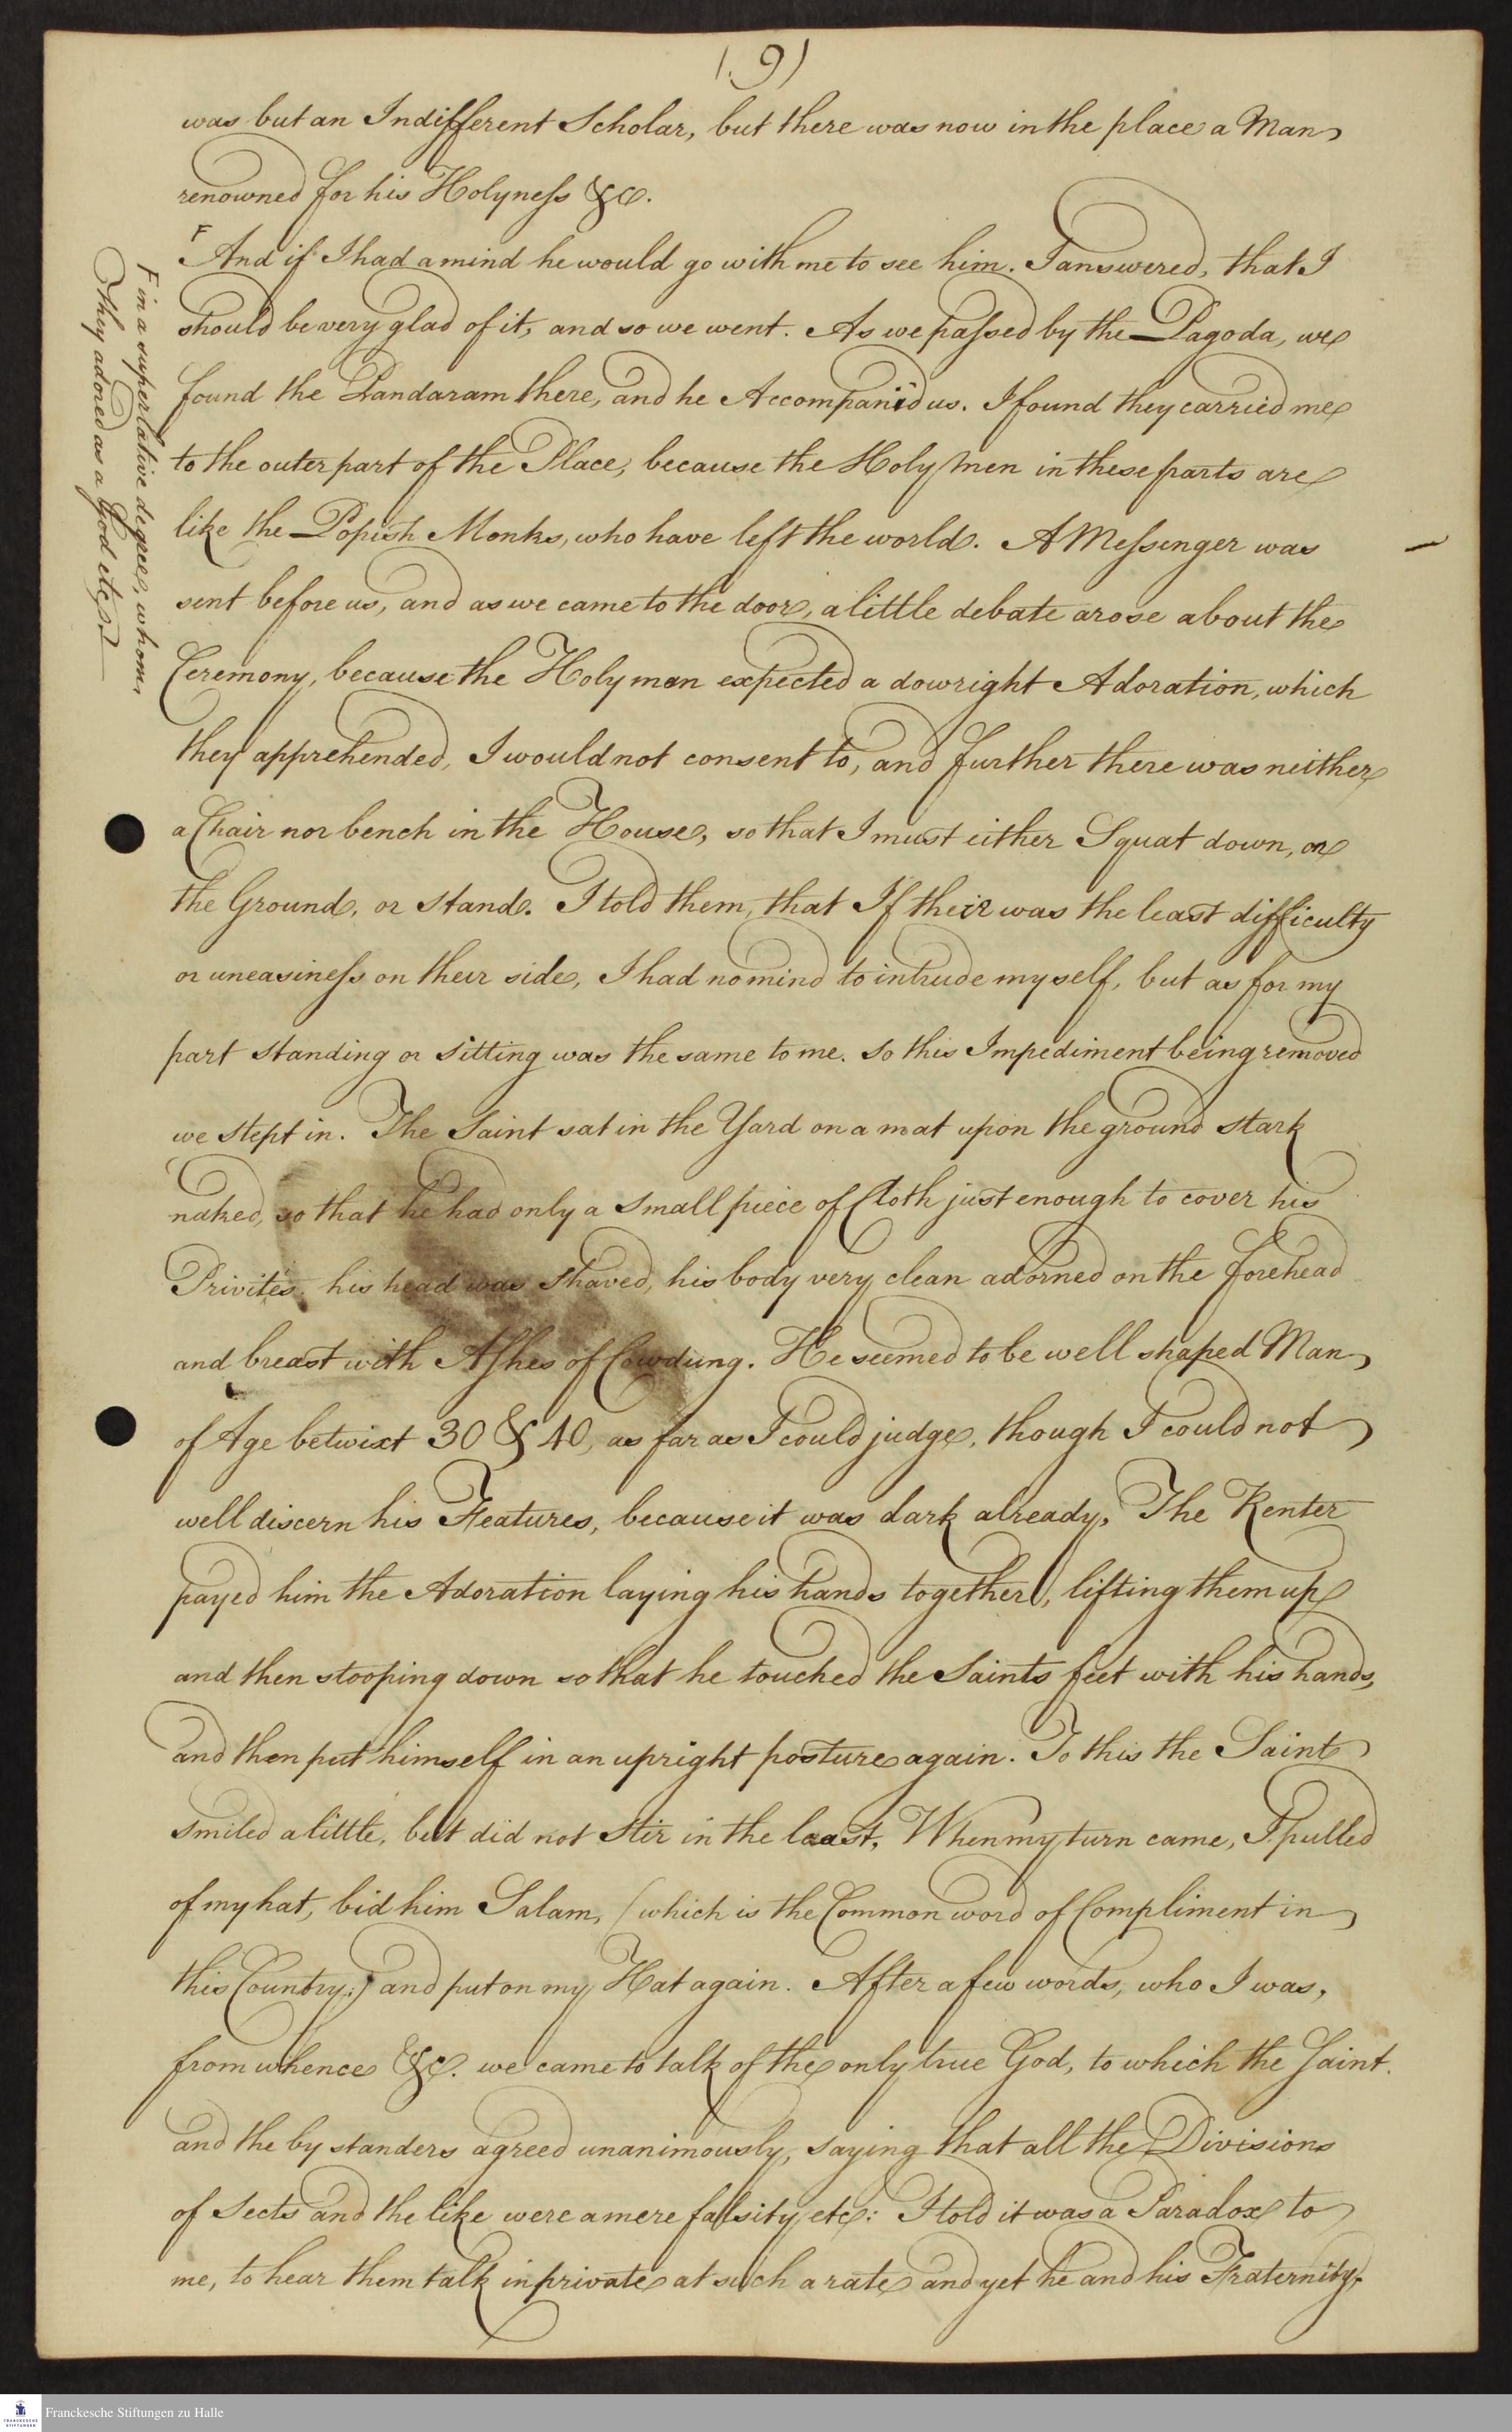 (9)
was but an Indifferent Scholar, but there was now in the place a Man
renowned for his Holyness &c.
F And if I had a mind he would go with me to see him. I answered, that I
should be very glad of it, and so we went. As we passed by the Pagoda, we
found the Pandaram there, and he Accompanid us. I found they carried me
to the outer part of the Place, because the Holy men in these parts are
like the Popish Monks, who have left the world. A Messenger was
sent before us, and as we came to the door, a little debate arose about the
Ceremony, because the Holy man expected a dowright Adoration, which
they apprehended, I would not consent to, and further there was neither
a Chair nor bench in the House, so that I must either Squat down, on
the Ground, or stand. I told them, that If their was the least difficulty
or uneasiness on their side, I had no mind to intrude myself, but as for my
part standing or sitting was the same to me. So this Impediment being removed
we stept in. The Saint sat in the Yard on a mat upon the ground stark
naked, so that he had only a small piece of Cloth just enough to cover his
Privites, his head was shaved, his body very clean adorned on the forehead
and breast with Ashes of Cowdung. He seemed to be well shaped Man
of Age betwixt 30 & 40, as far as I could judge, though I could not
well discern his Features, because it was dark already. The Renter
payed him the Adoration laying his hands together, lifting them up
and then stooping down so that he touched the Saints feet with his hands,
and then put himself in an upright posture again. To this the Saint
smiled a little, but did not stir in the least. When my turn came, I pulled
of my hat, bid him Salam, (which is the Common word of Compliment in
this Country:) and put on my Hat again. After a few words, who I was,
from whence &c. we came to talk of the only true God, to which the Saint.
and the by standers agreed unanimously, saying that all the Divisions
of Sects and the like were a mere falsity etc: I told it was a Paradox to
me, to hear them talk in private at such a rate and yet he and his Fraternity
F in a superlative degree, whom
they adored as a God etc.
Franckesche Stiftungen zu Halle
FRANCKESCHE
STIFTUNGEN